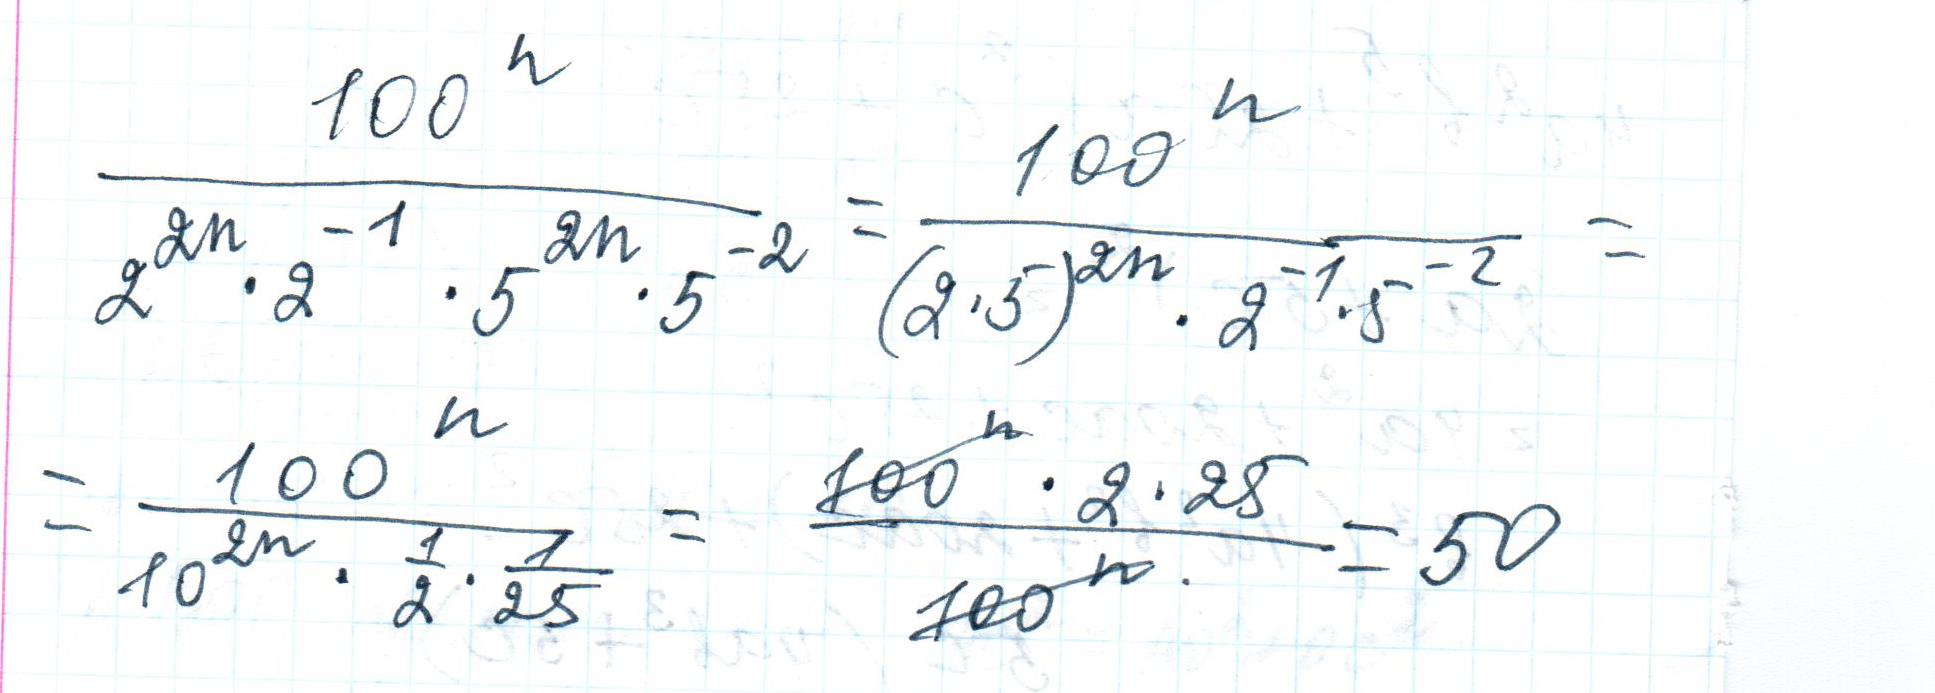 100^n / (2^{2n} · 2^{-1} · 5^{2n} · 5^{-2}) = 100^n / ((2·5)^{2n} · 2^{-1} · 5^{-2}) =
= 100^n / (10^{2n} · 1/2 · 1/25) = 100^n · 2 · 25 / 100^n · = 50